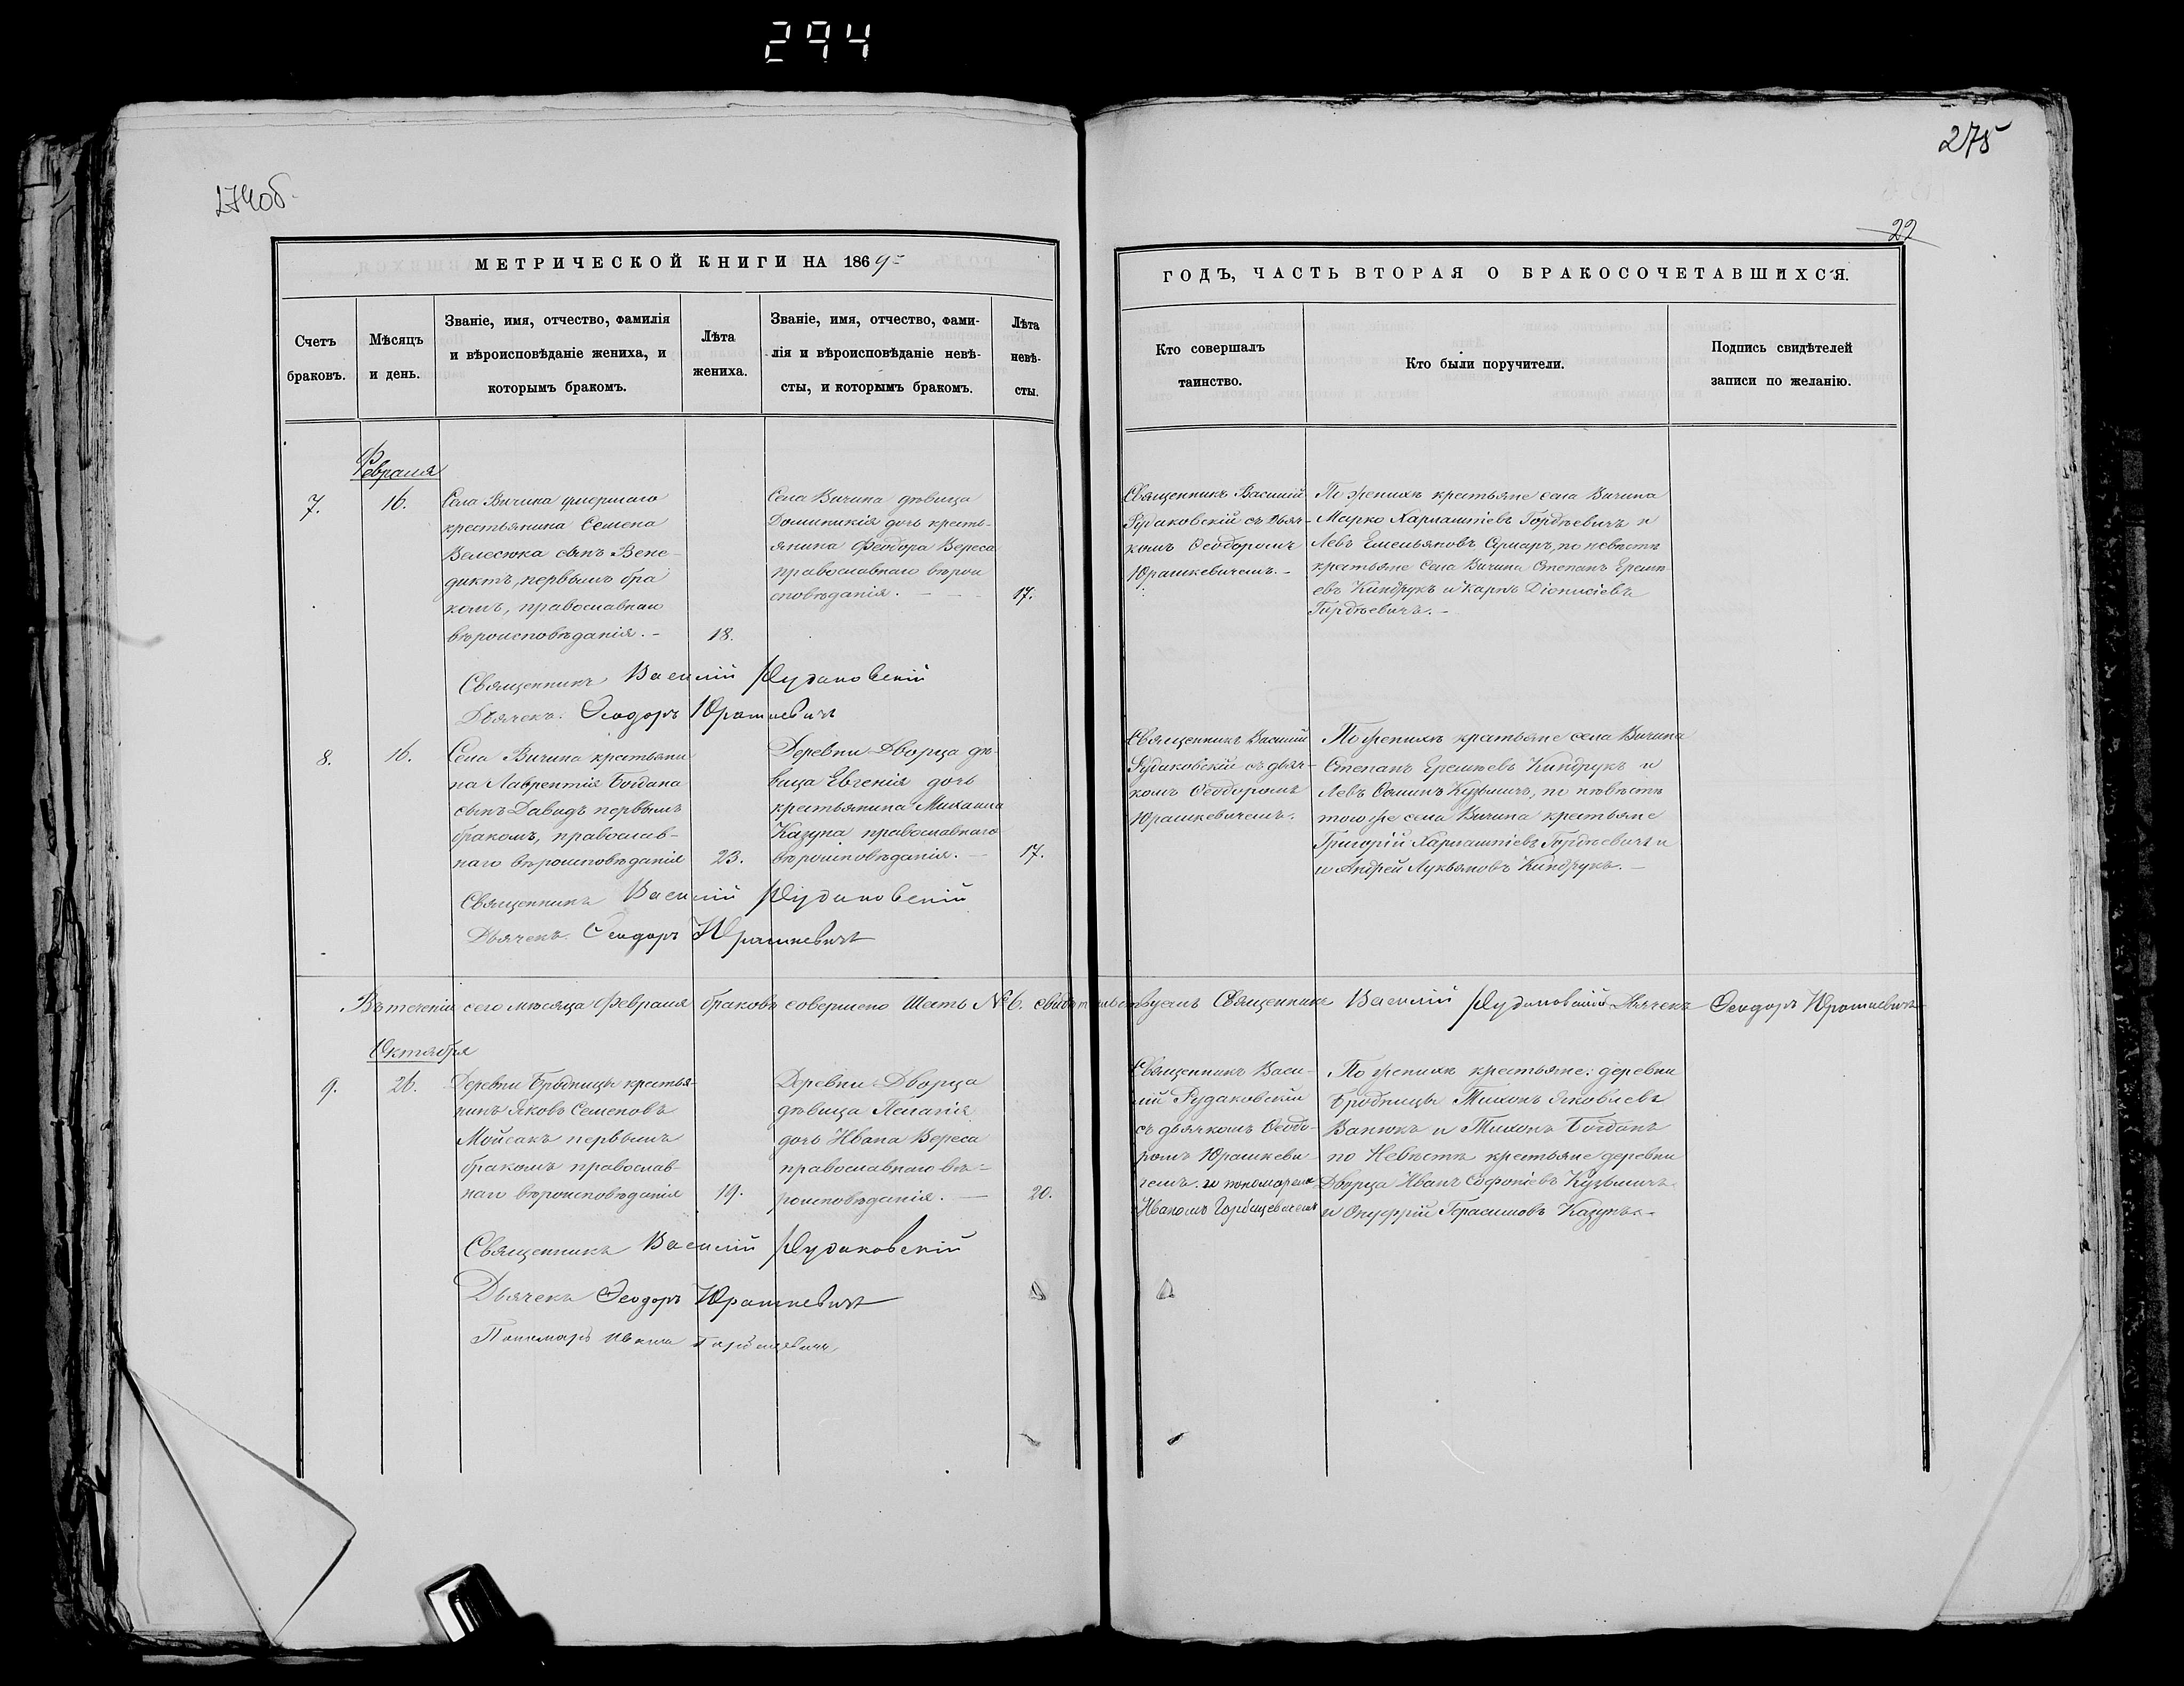 294
275
274об
22
МЕТРИЧЕСКОЙ КНИГИ НА 1869
ГОДЪ, ЧАСТЬ ВТОРАЯ О БРАКОСОЧЕТАВШИХСЯ.
Счетъ
браковъ.
Мѣсяцъ
и день.
Званіе, имя, отчество, фамилія
и вѣроисповѣданіе жениха, и
которымъ бракомъ.
Лѣта
жениха.
Званіе, имя, отчество, фами-
лія и вѣроисповѣданіе невѣ-
сты, и которымъ бракомъ.
Лѣта
невѣ-
сты.
Кто совершалъ
таинство.
Кто были поручители.
Подпись свидѣтелей
записи по желанію.
Февраля
7.
16.
Села Вичина умершаго
крестьянина Семена
Велесюка сынъ Вене-
диктъ, первымъ бра
комъ, православнаго
вѣроисповѣданія.-
18.
Села Вичина дѣвица
Доминикія дочь кресть-
янина Феодора Вереса
православнаго вѣрои
сповѣданія.
17.
Священникъ Василій
Рудаковскій съ дьяч-
комъ Ѳеодоромъ
Юрашкевичемъ.-
По женихѣ крестьяне села Вичина
Марко Харлампіевъ Гордѣевичъ и
Левъ Емельяновъ по невѣстѣ
крестьяне села Вичина Степанъ Ереми-
евъ Киндрукъ и Карпъ Діонисіевъ
Гордѣевичъ.-
Священникъ Василій Рудаковскій
Дьячекъ Ѳеодоръ Юрашкевичъ
8.
16.
Села Вичина крестьяни
на Лаврентія Богдана
сынъ Давидъ первымъ
бракомъ, православ-
наго вѣроисповѣданія
23.
Деревни Дворца дѣ-
вица Евгенія дочь
крестьянина Михаила
Казуна православнаго
вѣроисповѣданія.-
17.
Священникъ Василій
Рудаковскій съ дьяч-
комъ Ѳеодоромъ
Юрашкевичемъ.
По женихѣ крестьяне села Вичина
Степанъ Ереміевъ Киндрукъ и
Левъ Кузьмичъ, по невѣстѣ
того же села Вичина крестьяне
Григорій Харлампіевъ Гордѣевичъ и
и Андрей Лукьяновъ Киндрукъ.-
Священникъ Василій Рудаковскій
Дьячекъ Ѳеодоръ Юрашкевичъ
Въ теченіи сего мѣсяца Февраля браковъ совершено Шесть №6. свидѣтельствуемъ Священникъ Василій Рудаковскій Дьячекъ Ѳеодоръ Юрашкевичъ
Октября
9.
26.
Деревни Бродницы крестья-
нинъ Яковъ Семеновъ
Мойсакъ первымъ
бракомъ православ-
наго вѣроисповѣданія
19.
Деревни Дворца
дѣвица Пелагія
дочь Ивана Вереса
православнаго вѣ-
роисповѣданія.-
20.
Священникъ Васи-
лій Рудаковскій
съ дьячкомъ Ѳеодо-
ромъ Юрашкеви-
чемъ. и пономаремъ
Иваномъ Горбацевичемъ
По женихѣ крестьяне: деревни
Бродницы Тихонъ Яковлевъ
Ванюкъ и Тихонъ Богданъ
по Невѣстѣ крестьяне деревни
Дворца Иванъ Софоніевъ Кузьмичъ
и Онуфрій Герасимовъ Казунъ.-
Священникъ Василій Рудаковскій
Дьячекъ Ѳеодоръ Юрашкевичъ
Пономарь Иванъ Горбацевичъ